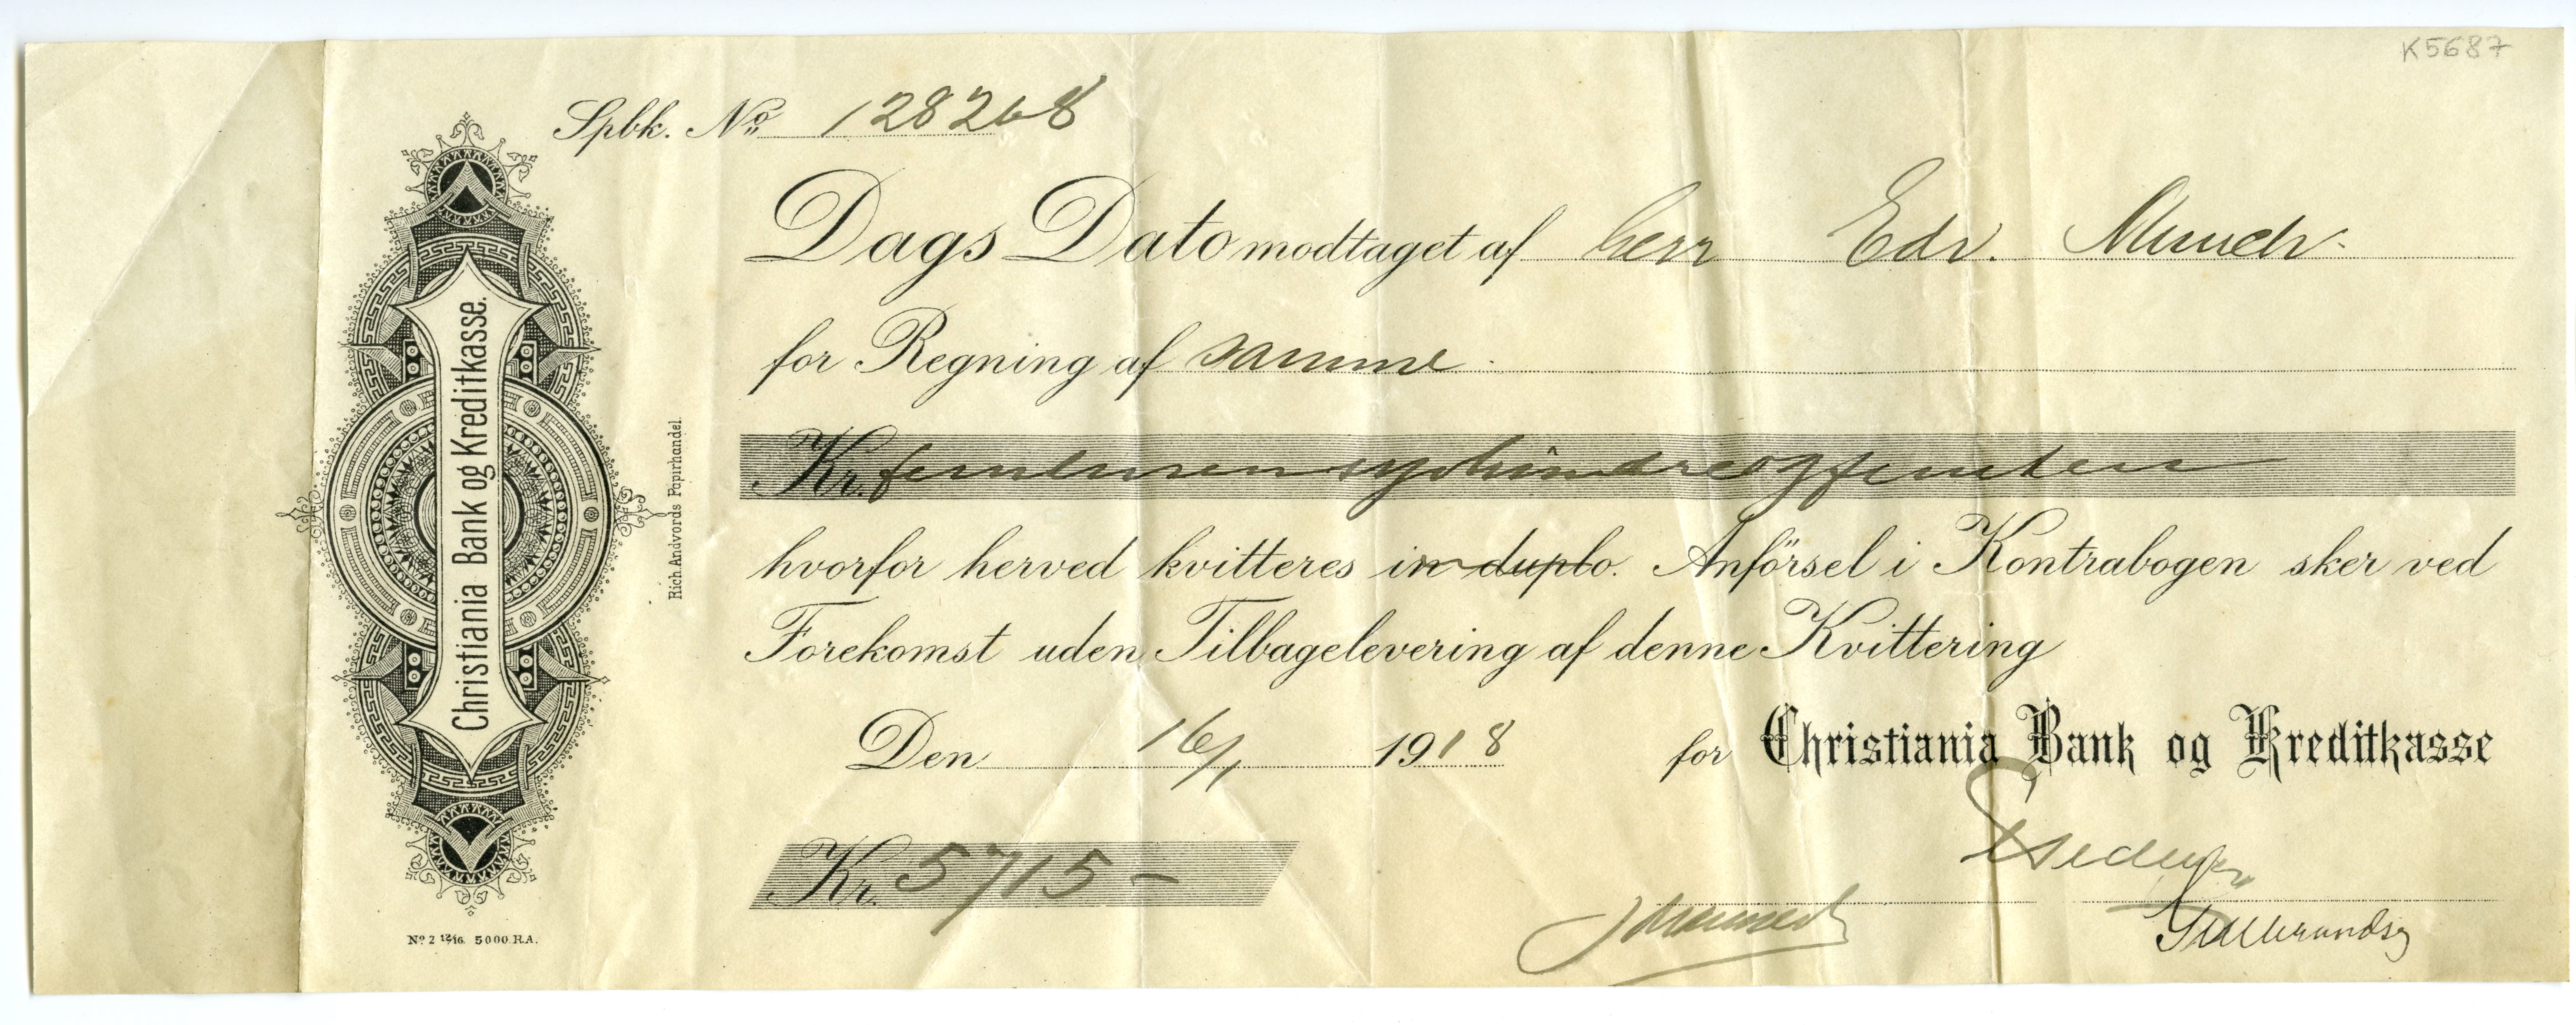 K5687
Spbk. No 128268
Dags Dato modtaget af herr Edv. Munch.
for Regning af samme.
Kr. femtusensyvhundreogfemten
hvorfor herved kvitteres in duplo. Anförsel i Kontrabogen sker ved
Forekomst uden Tilbagelevering af denne Kvittering
Den 16/1 1918 for Christiania Bank og Kreditkasse
Kr. 5715 –
Christiania Bank og Kreditkasse.
Rich Andvords Papirhandel.
No 2 12/16. 5000 R.A.